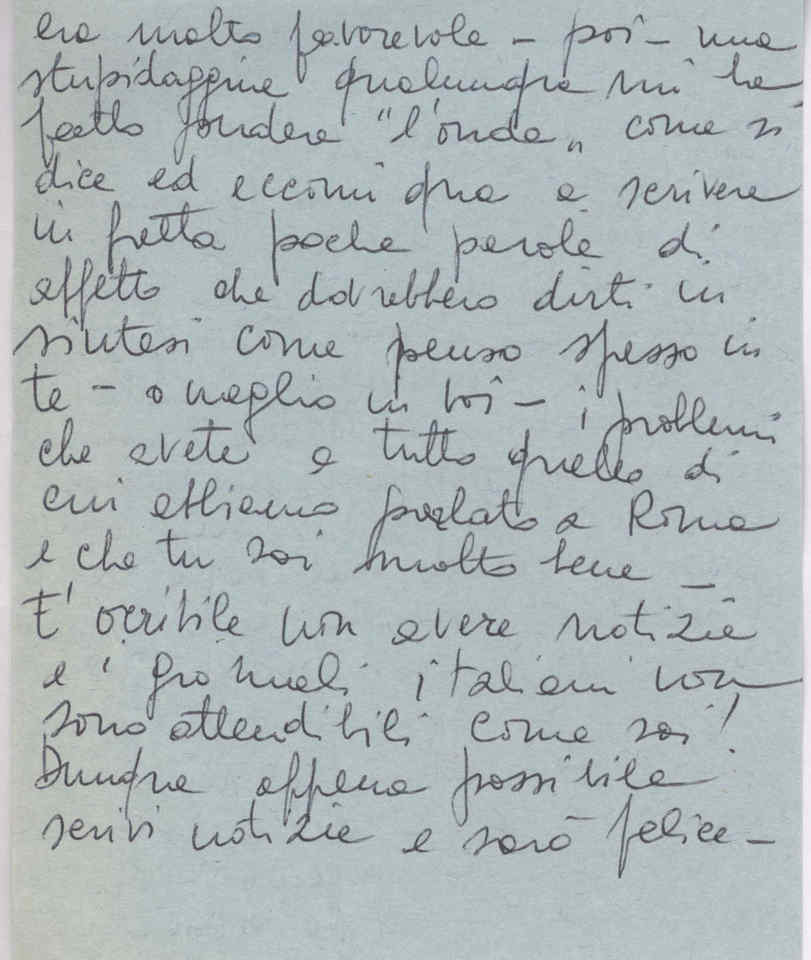 era molto favorevole - poi - una
stupidaggine qualunque mi ha
fatto fondere "l'onda„ come si
dice ed eccomi qua a scrivere
in fretta poche parole di
affetto che dovrebbero dirti in
sintesi come penso spesso in
te - o meglio in voi - i problemi
che avete e tutto quello di
cui abbiamo parlato a Roma
e che tu sai molto bene -
E' orribile non avere notizie
e i giornali italiani non
sono attendibili come sai!
Dunque appena possibile
scrivi notizie e sarò felice -